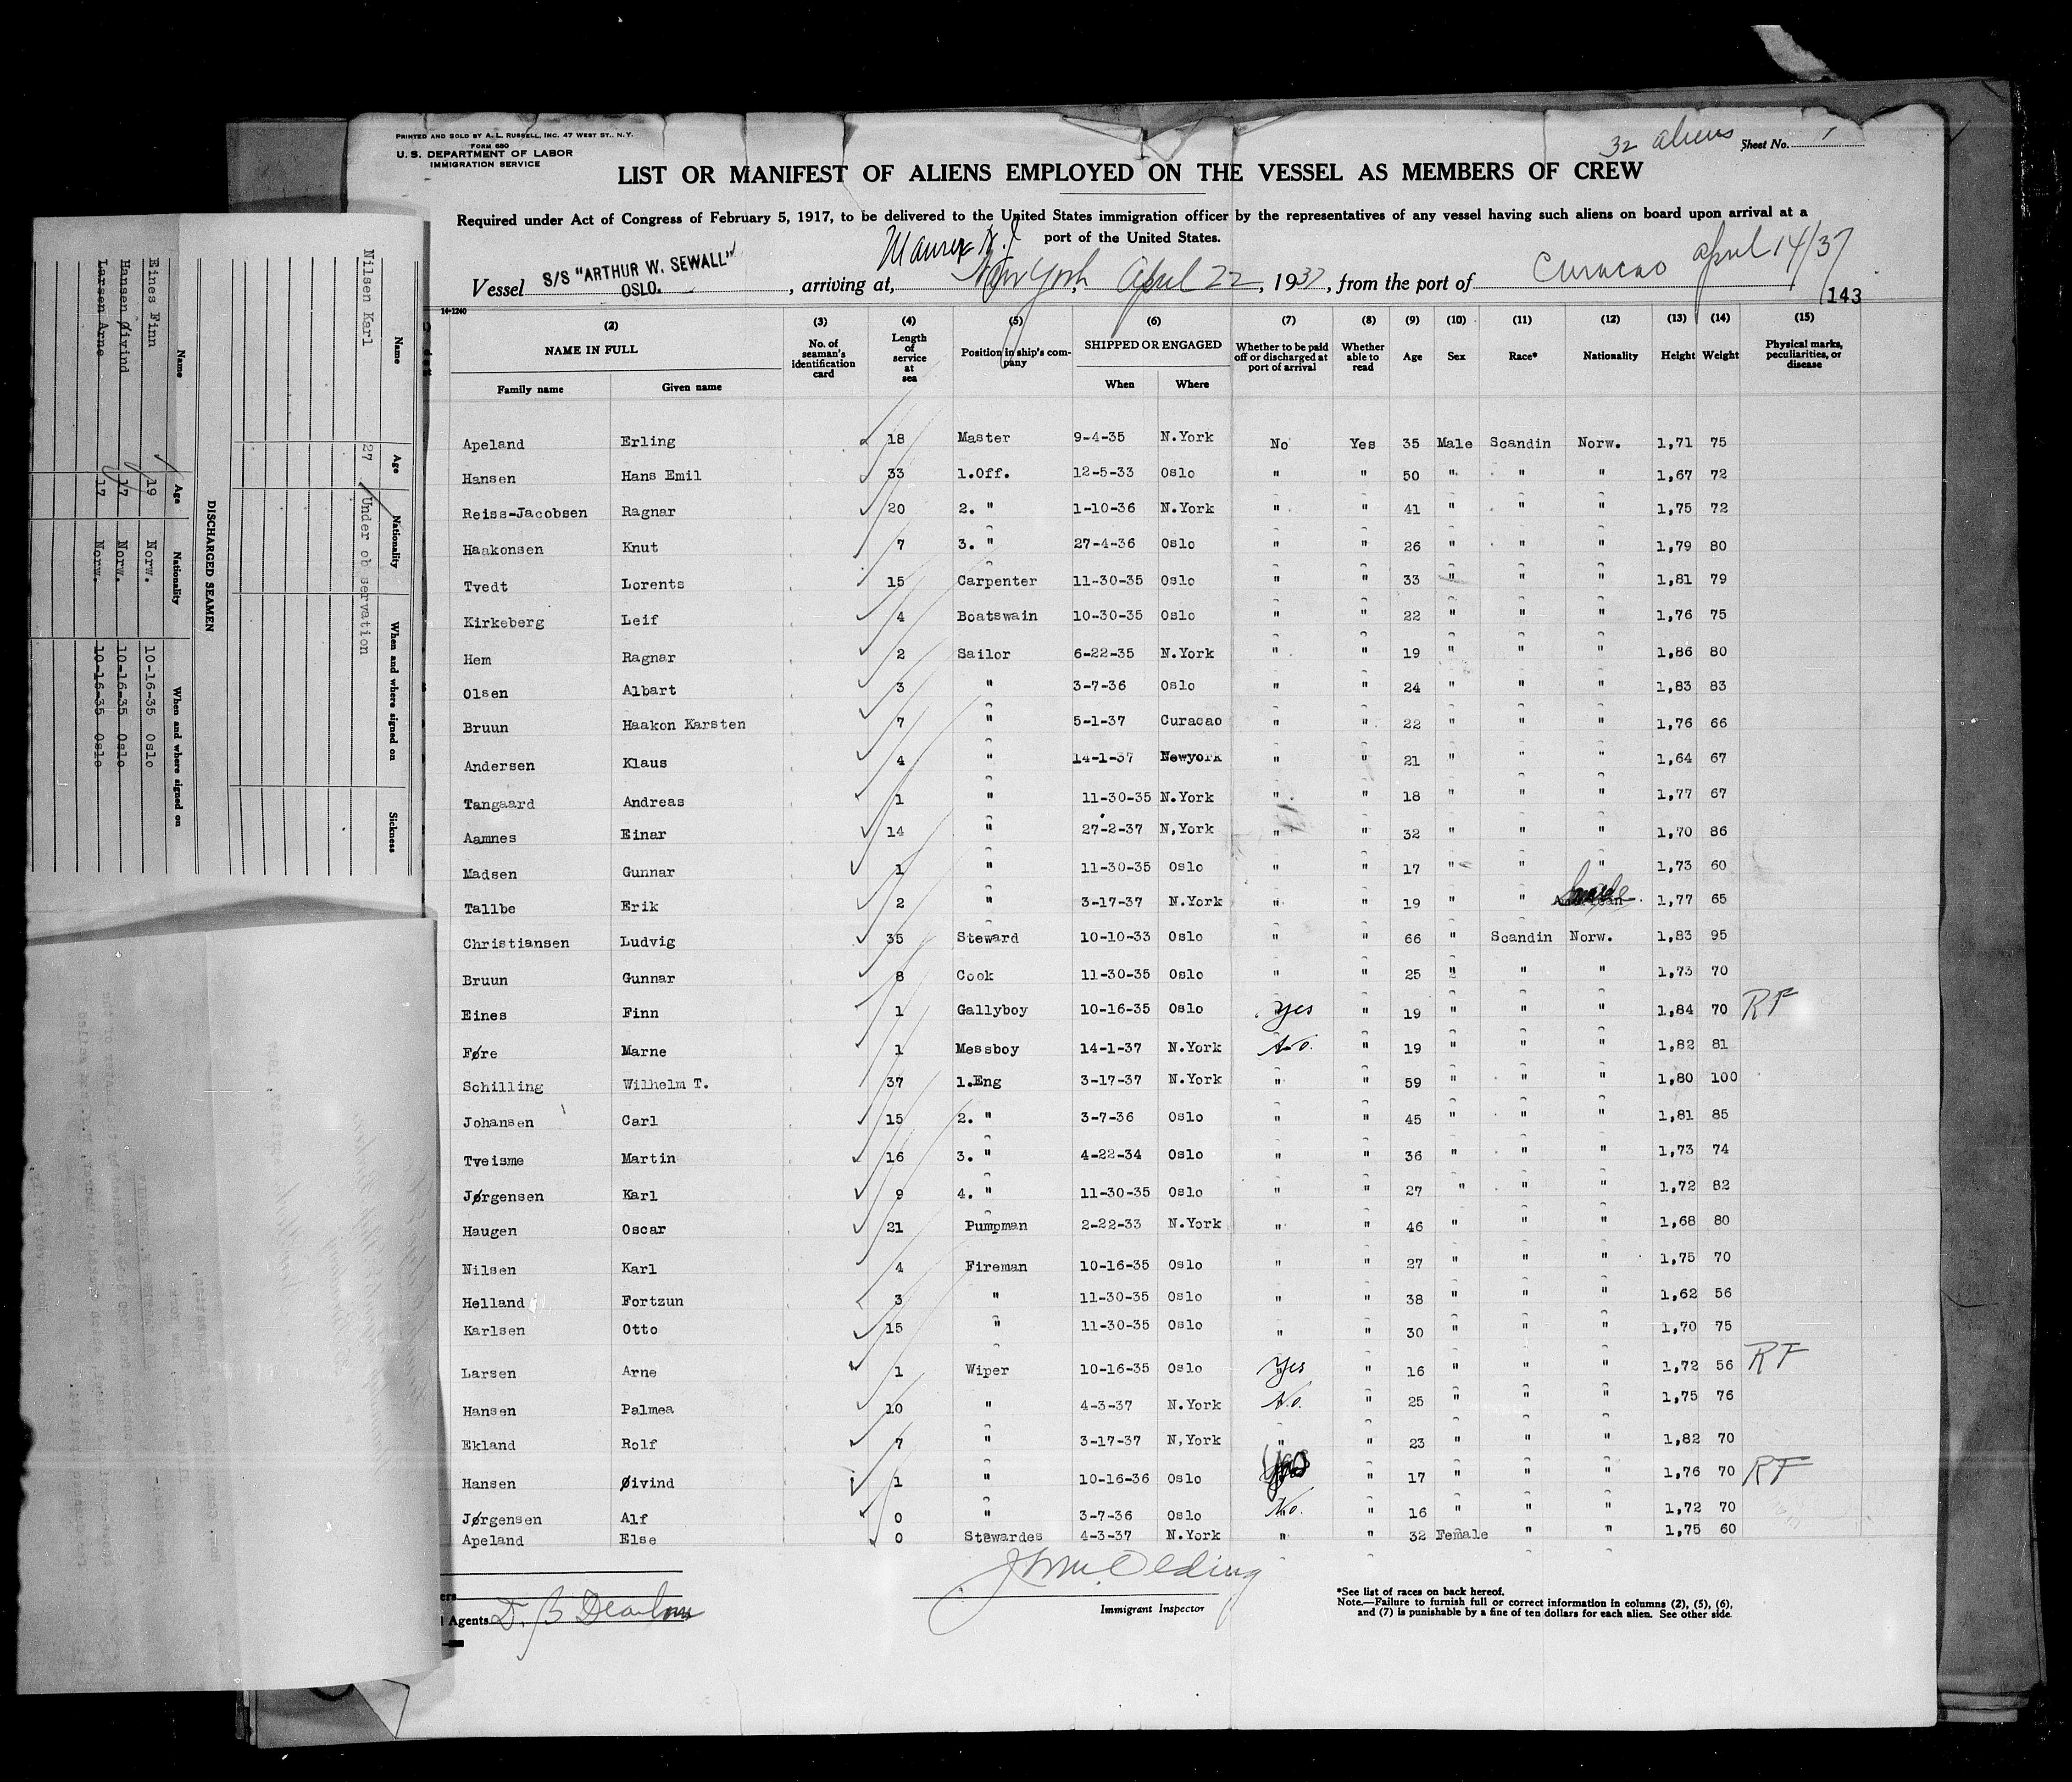 PRINTED AND SOLD BY A. L. RUSSELL, INC. 47 WEST ST., N.Y.
FORM 680
U. S. DEPARTMENT OF LABOR
IMMIGRATION SERVICE
32 aliens Sheet No. 1
LIST OR MANIFEST OF ALIENS EMPLOYED ON THE VESSEL AS MEMBERS OF CREW
Required under Act of Congress of February 5, 1917, to be delivered to the United States immigration officer by the representatives of any vessel having such aliens on board upon arrival at a
port of the United States.
Vessel S/S "ARTHUR W. SEWALL" OSLO. , arriving at, New York, April 22, 1937, from the port of Curacao April 14/37
143
14-1240
(2) (3) (4) (5) (6) (7) (8) (9) (10) (11) (12) (13) (14) (15)
NAME IN FULL No. of seaman's identification card Length of service at sea Position in ship's company SHIPPED OR ENGAGED Whether to be paid off or discharged at port of arrival Whether able to read Age Sex Race* Nationality Height Weight Physical marks, peculiarities, or disease
Family name Given name When Where
Apeland Erling 18 Master 9-4-35 N.York No Yes 35 Male Scandin Norw. 1,71 75
Hansen Hans Emil 33 1.Off. 12-5-33 Oslo " " 50 " " " 1,67 72
Reiss-Jacobsen Ragnar 20 2. " 1-10-36 N.York " " 41 " " " 1,75 72
Haakonsen Knut 7 3. " 27-4-36 Oslo " " 26 " " " 1,79 80
Tvedt Lorents 15 Carpenter 11-30-35 Oslo " " 33 " " " 1,81 79
Kirkeberg Leif 4 Boatswain 10-30-35 Oslo " " 22 " " " 1,76 75
Hem Ragnar 2 Sailor 6-22-35 N.York " " 19 " " " 1,86 80
Olsen Albart 3 " 3-7-36 Oslo " " 24 " " " 1,83 83
Bruun Haakon Karsten 7 " 5-1-37 Curacao " " 22 " " " 1,76 66
Andersen Klaus 4 " 14-1-37 Newyork " " 21 " " " 1,64 67
Tangaard Andreas 1 " 11-30-35 N.York " " 18 " " " 1,77 67
Aamnes Einar 14 " 27-2-37 N,York " " 32 " " " 1,70 86
Madsen Gunnar 1 " 11-30-35 Oslo " " 17 " " " 1,73 60
Tallbe Erik 2 " 3-17-37 N.York " " 19 " " 1,77 65
Christiansen Ludvig 35 Steward 10-10-33 Oslo " " 66 " Scandin Norw. 1,83 95
Bruun Gunnar 8 Cook 11-30-35 Oslo " " 25 " " " 1,73 70
Eines Finn 1 Gallyboy 10-16-35 Oslo yes " 19 " " " 1,84 70 RF
Føre Marne 1 Messboy 14-1-37 N.York No. " 19 " " " 1,82 81
Schilling Wilhelm T. 37 1.Eng 3-17-37 N.York " " 59 " " " 1,80 100
Johansen Carl 15 2. " 3-7-36 Oslo " " 45 " " " 1,81 85
Tveisme Martin 16 3. " 4-22-34 Oslo " " 36 " " " 1,73 74
Jørgensen Karl 9 4. " 11-30-35 Oslo " " 27 " " " 1,72 82
Haugen Oscar 21 Pumpman 2-22-33 N.York " " 46 " " " 1,68 80
Nilsen Karl 4 Fireman 10-16-35 Oslo " " 27 " " " 1,75 70
Helland Fortzun 3 " 11-30-35 Oslo " " 38 " " " 1,62 56
Karlsen Otto 15 " 11-30-35 Oslo " " 30 " " " 1,70 75
Larsen Arne 1 Wiper 10-16-35 Oslo yes " 16 " " " 1,72 56 RF
Hansen Palmea 10 " 4-3-37 N.York No. " 25 " " " 1,75 76
Ekland Rolf 7 " 3-17-37 N,York " " 23 " " " 1,82 70
Hansen Øivind 1 " 10-16-36 Oslo Yes " 17 " " " 1,76 70 RF
Jørgensen Alf 0 " 3-7-36 Oslo No. " 16 " " " 1,72 70
Apeland Else 0 Stewardes 4-3-37 N.York " " 32 Female " " 1,75 60
ers
Agents
Immigrant Inspector
*See list of races on back hereof.
Note.—Failure to furnish full or correct information in columns (2), (5), (6),
and (7) is punishable by a fine of ten dollars for each alien. See other side.
Name Age Nationality When and where signed on Sickness
Nilsen Karl 27 Under observation
DISCHARGED SEAMEN
Name Age Nationality When and where signed on
Eines Finn 19 Norw. 10-16-35 Oslo
Hansen Øivind 17 Norw. 10-16-35 Oslo
Larsen Arne 17 Norw. 10-16-35 Oslo